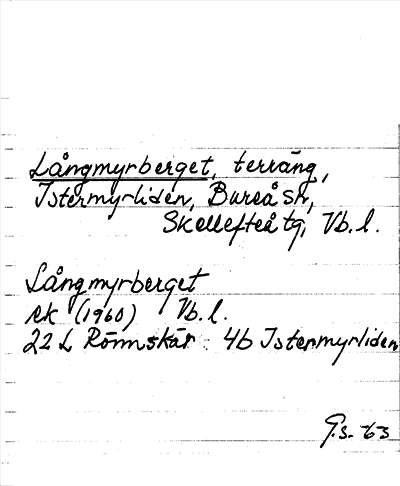 Långmyrberget, terräng,
Istermyrliden, Bureå sn,
Skellefteå tg, Vb. l.
Långmyrberget
rk (1960) Vb. l.
22 L Rönnskär 4b Istermyrliden
G.s. -63